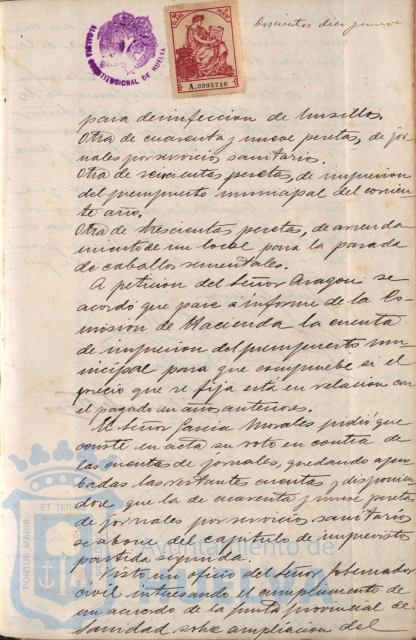 Doscientos diez y nueve
ALCALDIA CONSTITUCIONAL DE HUELVA
A.3295716
para desinfeccion de
Otra de cuarenta y nueve pesetas, de jor-
nales por servicio sanitario.
Otra de seiscientas pesetas, de impresion
del presupuesto municipal del corrien-
te año.
Otra de trescientas pesetas, de arrenda-
miento de un local para la parada
de caballos sementales.
A peticion del Señor Aragon se
acordó que pase á informe de la Co-
mision de Hacienda la cuenta
de impresion del presupuesto mu-
nicipal para que compruebe si el
precio que se fija está en relacion con
el pagado en años anteriores.
El Señor Garcia Morales pidió que
conste en acta su voto en contra de
las cuentas de jornales, quedando apro-
badas las restantes cuentas y disponien-
dose que la de cuarenta y nueve pesetas
de jornales por servicio sanitario
se abone del capitulo de imprevistos
partida segunda.
Visto un oficio del Señor Gobernador
civil interesando el cumplimento de
un acuerdo de la Junta provincial de
Sanidad sobre ampliacion del
ET TERRÆ
PORTUS MARIS
Ayuntamiento de
HUELVA